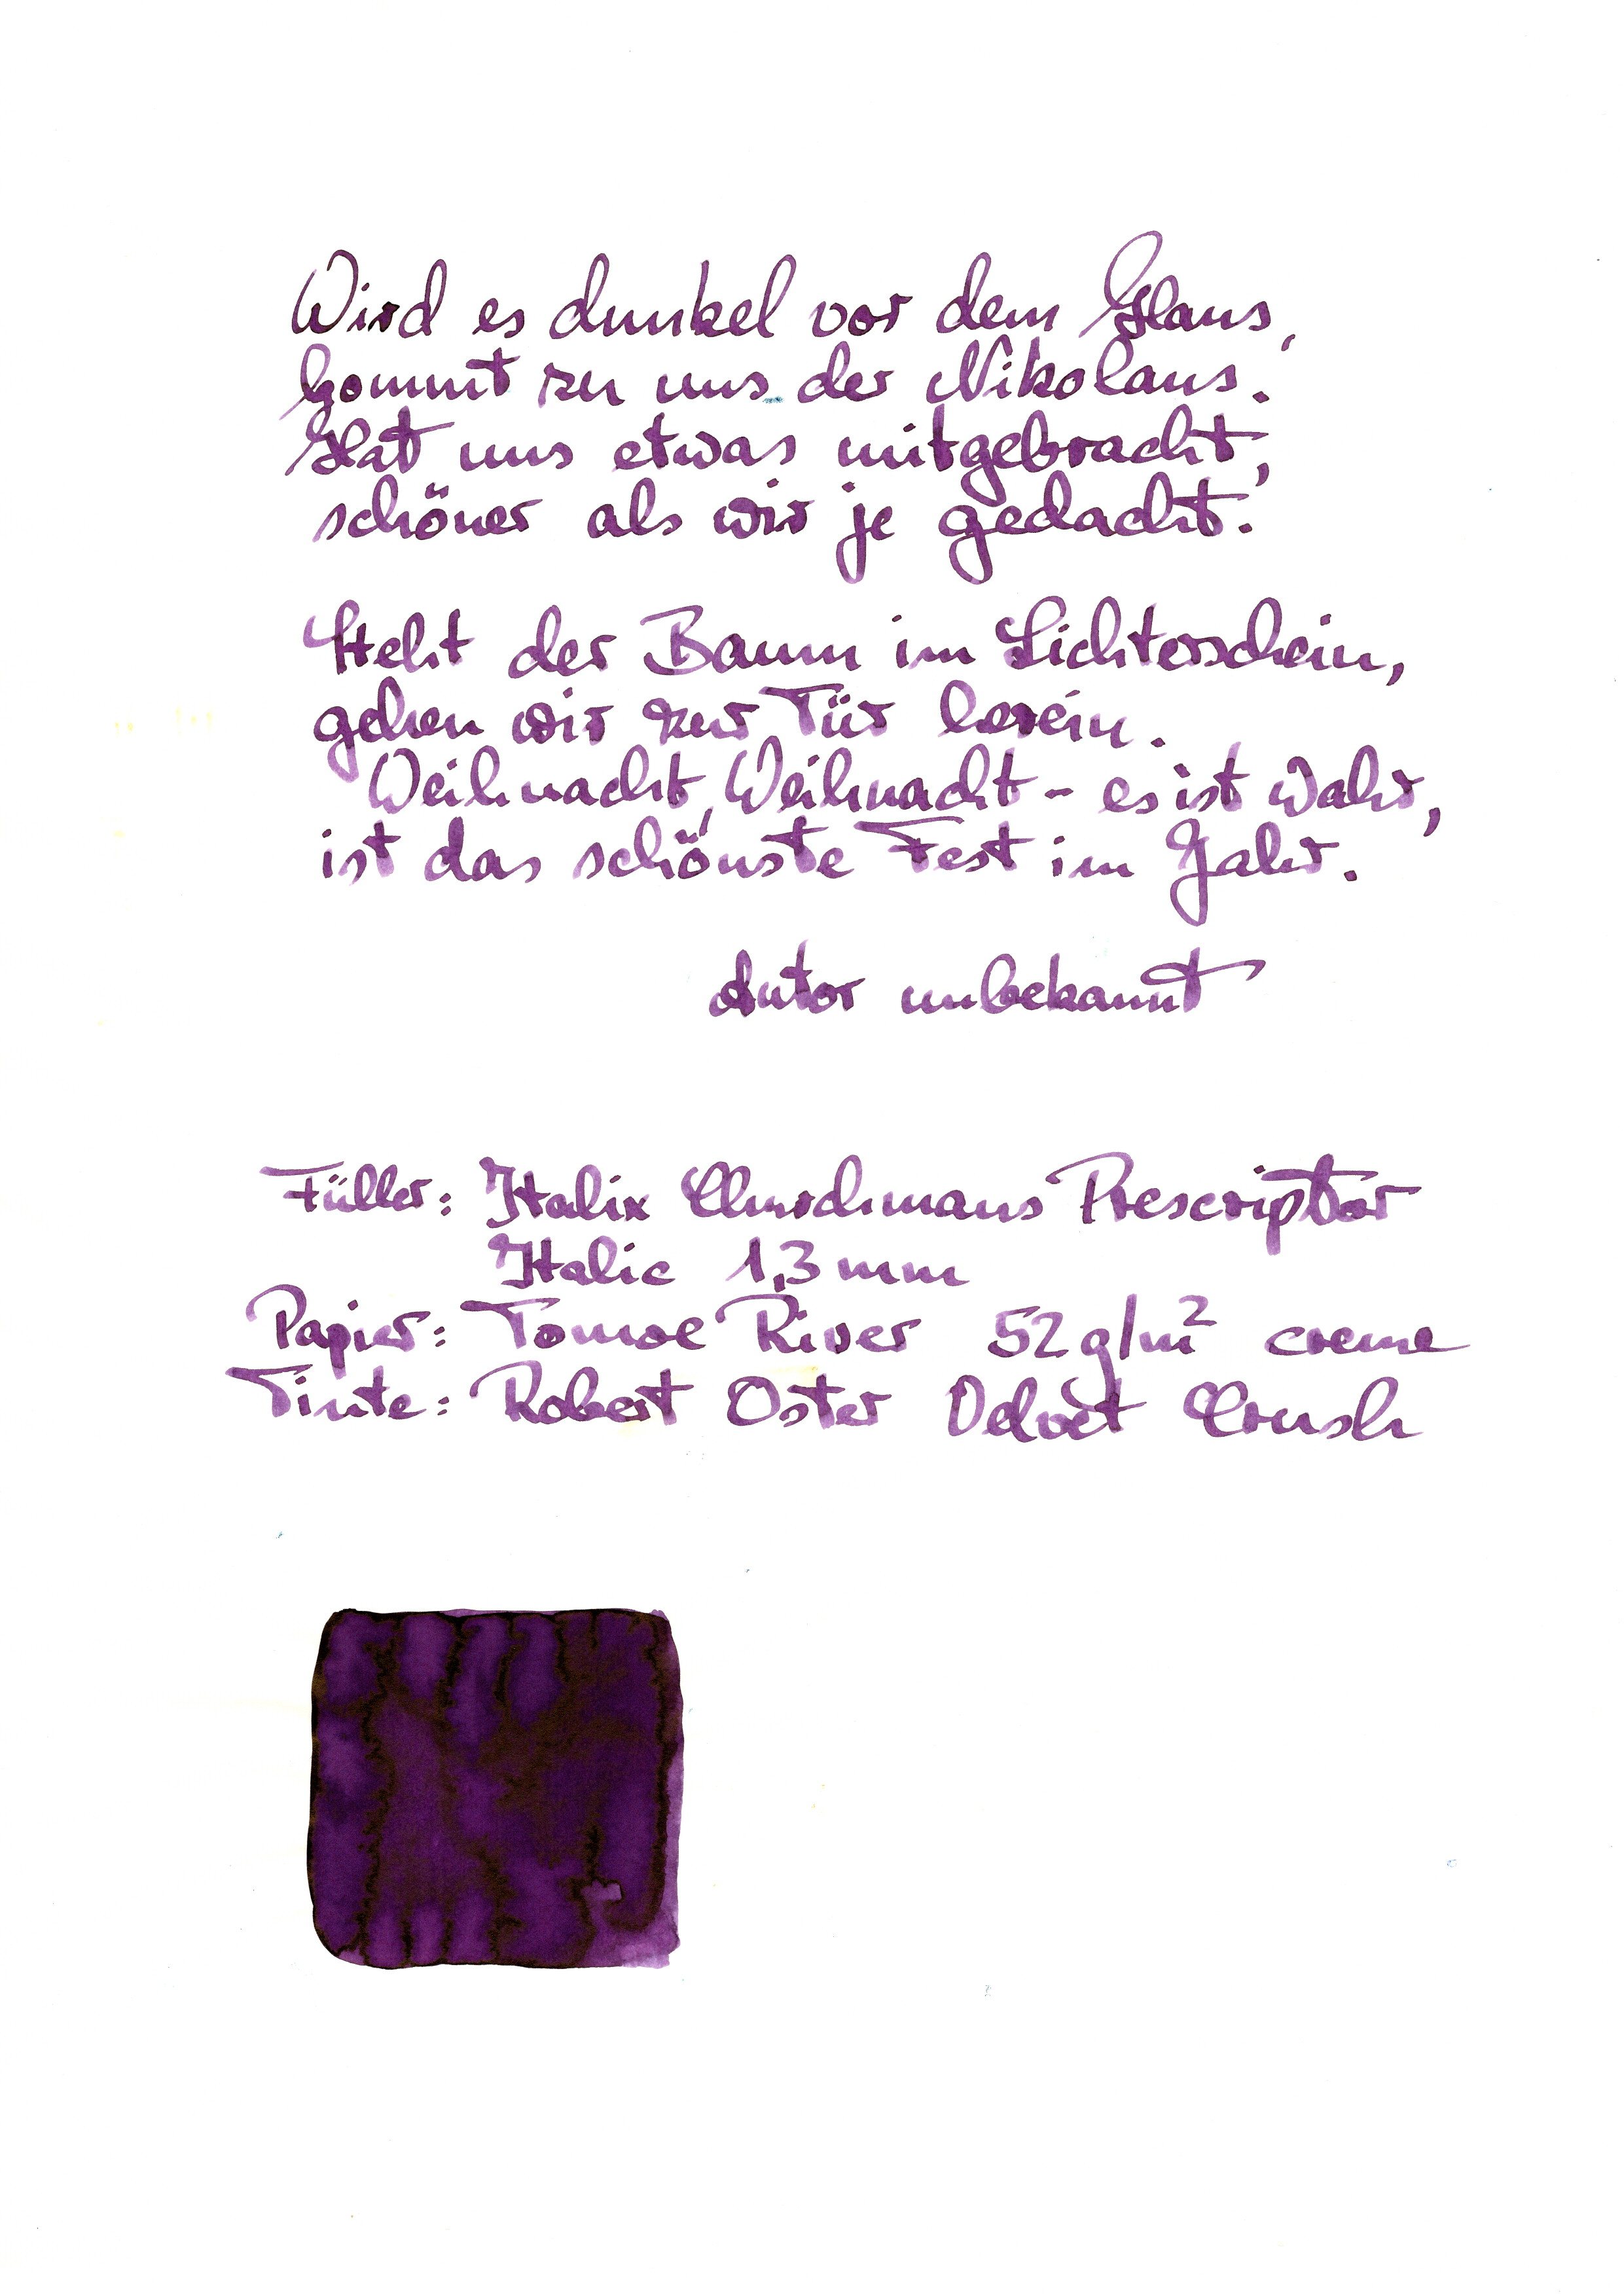 Wird es dunkel vor dem Haus,
kommt zu uns der Nikolaus.
Hat uns etwas mitgebracht,
schöner als wir je gedacht.
Steht der Baum im Lichterschein,
gehen wir zur Tür herein.
Weihnacht, Weihnacht - es ist wahr,
ist das schönste Fest im Jahr.
Autor unbekannt
Füller: Italix Churchmans Prescriptor
Italic 1,3 mm
Papier: Tomoe River 52 g/m² creme
Tinte: Robert Oster Velvet Crush